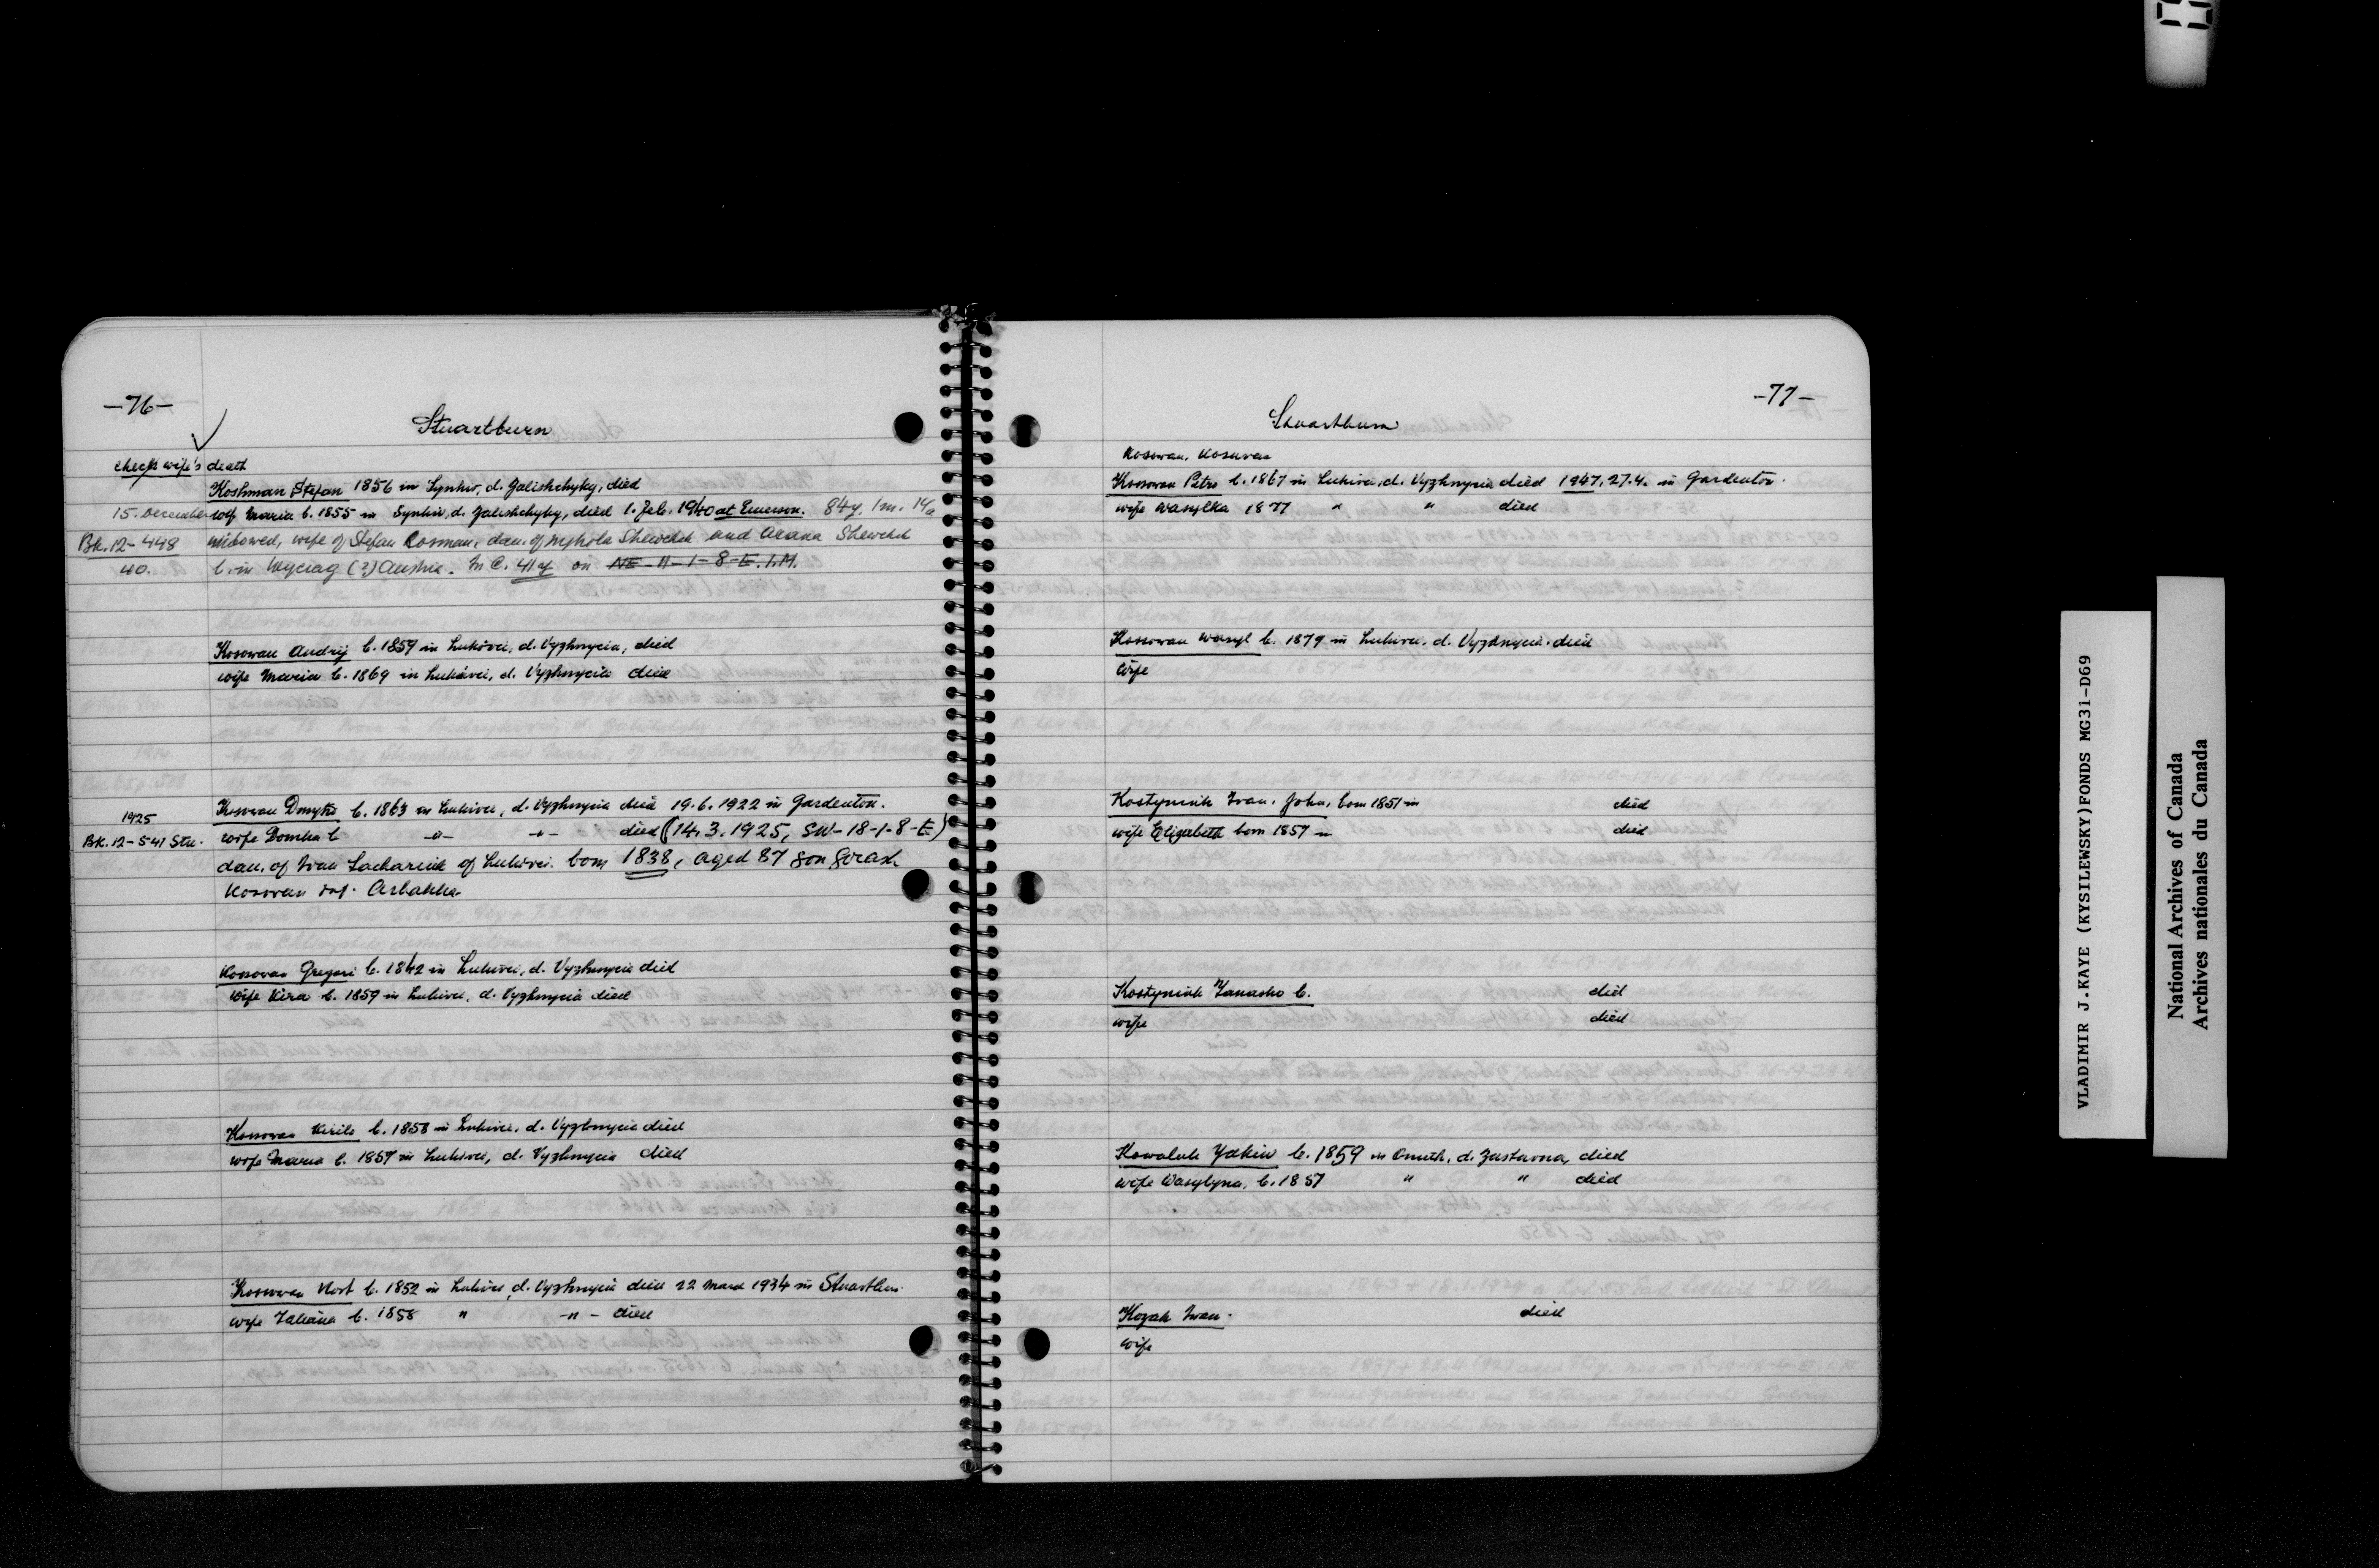 -76-
Stuartburn
check wife's death
Koshman Stefan 1856 in Synkiv, d. Zalishchyky, died
15. December wife Maria b. 1855 in Synkiv, d. Zalishchyky, died 1. Feb. 1940 at Emerson. 84y. 1m. 14
Bk. 12-448 widowed, wife of Stefan Kosman, dau. of Mykola Shewchuk and Arana Shewchuk
40. b. in Wyciag (?) Austria. In C. 41y on NE-11-1-8-E.I.M.
Kosowan Andrij b. 1859 in Lukivci, d. Vyzhnycia, died
wife Maria b. 1869 in Lukivci, d. Vyzhnycia died
1925 Kosowan Dmytro b. 1863 in Lukivci, d. Vyzhnycia died 19.6.1922 in Gardenton.
Bk. 12-541 Stu. wife Domka b -"- -"- died (14.3.1925, SW-18-1-8-E)
dau. of Ivan Zachariuk of Lukivci. born 1838, aged 87 son
Kosovan inf. Arbakka
Kossovan Gregori b. 1842 in Lukivci, d. Vyzhnycia died
wife Kira b. 1859 in Lukivci, d. Vyzhnycia died
Kossovan Kirilo b. 1858 in Lukivci, d. Vyzhnycia died
wife Maria b. 1857 in Lukivci, d. Vyzhnycia died
Kossowan Kost b. 1852 in Lukivci, d. Vyzhnycia died 22 March 1934 in Stuartburn.
wife Tatiana b. 1858 " -"- died
-77-
Stuartburn
Kosowan, Kosuvan
Kossovan Petro b. 1867 in Lukivci, d. Vyzhnycia died 1947, 27.4. in Gardenton.
wife Wasylka 1877 " " died
Kossowan Wasyl b. 1879 in Lukivci, d. Vyzhnycia. died
wife
Kostyniuk Ivan, John, born 1851 in died
wife Elizabeth born 1857 in died
Kostyniuk Tanasko b. died
wife died
Kowaluk Yakiw b. 1859 in Onuth, d. Zastavna, died
wife Wasylyna, b. 1857 " " died
Kozak Iwan. died
wife
VLADIMIR J.KAYE (KYSILEWSKY)FONDS MG31-D69
National Archives of Canada
Archives nationales du Canada